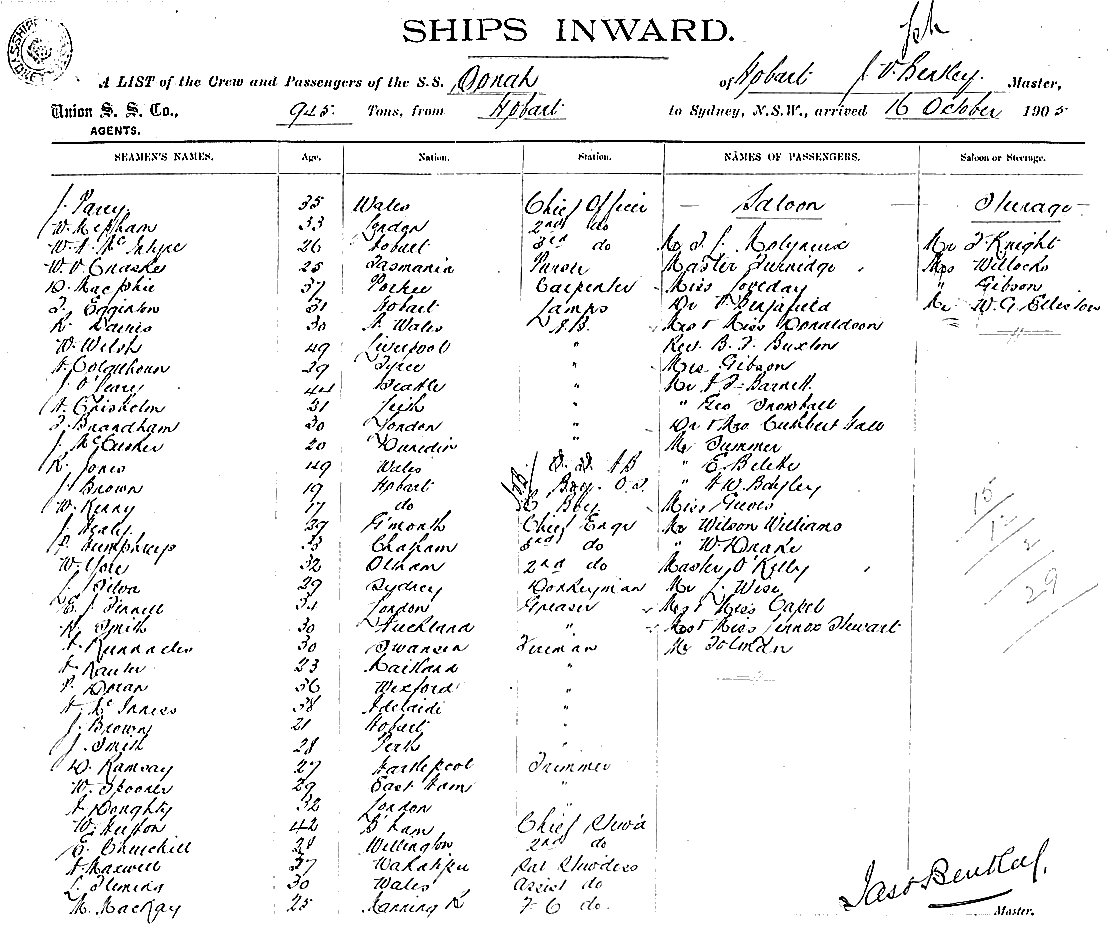 SHIPS INWARD.
A LIST of the Crew and Passengers of the S.S. Oonah of Hobart J. V. Bentley. Master,
Union S. S. Co., 945 Tons, from Hobart to Sydney, N.S.W., arrived 16 October 1905
AGENTS.
SEAMEN'S NAMES. Age. Nation. Station. NAMES OF PASSENGERS. Saloon or Steerage.
J. Parry 35 Wales Chief Officer — Saloon — Steerage
W. Mepham 33 London 2nd do
26 Hobart 3rd do Mr Knight
25 Tasmania Purser Master Mrs Willocks
D. Macphie 37 Carpenter Miss Loveday " Gibson
31 Hobart Lamps Dr Benjafield Mr W. G.
R. Davies 30 N Wales A.B. Mrs & Miss Donaldson
W. Welsh 49 Liverpool " Rev. B. Buxton
A Colquhoun 29 Tyree " Mrs Gibson
J. O'Leary 44 Seattle " Mr Barnett
A. Chisholm 31 Leith " " Geo Snowball
Brandham 30 London " Dr & Mrs Cuthbert
J. McCusker 20 Dunedin " Mr
R. Jones 49 Wales AB "
J. Brown 19 Hobart Boy O.S. " Bayley
W. Kenny 17 do Boy Miss
J. Healy 39 G'mouth Chief Engr Mr Wilson Williams
P. Humphreys 33 Chatham 3rd do " W Drake
W. 32 Oldham 2nd do Master O'Kelly
J. Silva 29 Sydney Donkeyman Mr J. Wise
E. J. Finnell 34 London Greaser Mrs & Miss Capel
Smith 30 Auckland " Mrs & Miss Lennox Stewart
30 Swansea Fireman Mr Tolman
23 Maitland "
P. Doran 36 Wexford "
A. McInness 38 Adelaide "
J. Brown 21 Hobart "
J. Smith 28 Perth "
D. Ramsay 27 Hartlepool Trimmer
W. Spooner 29 East Ham "
A Doughty 32 London "
W. Huston 42 B'ham Chief Stewd
E. Churchill 28 Wellington 2nd do
A Maxwell 37 Wakatipu Stwdess
L. Fleming 30 Wales Assist do
M. Mackay 25 Manning R do
15
12
2
29
Jas V Bentley.
Master.